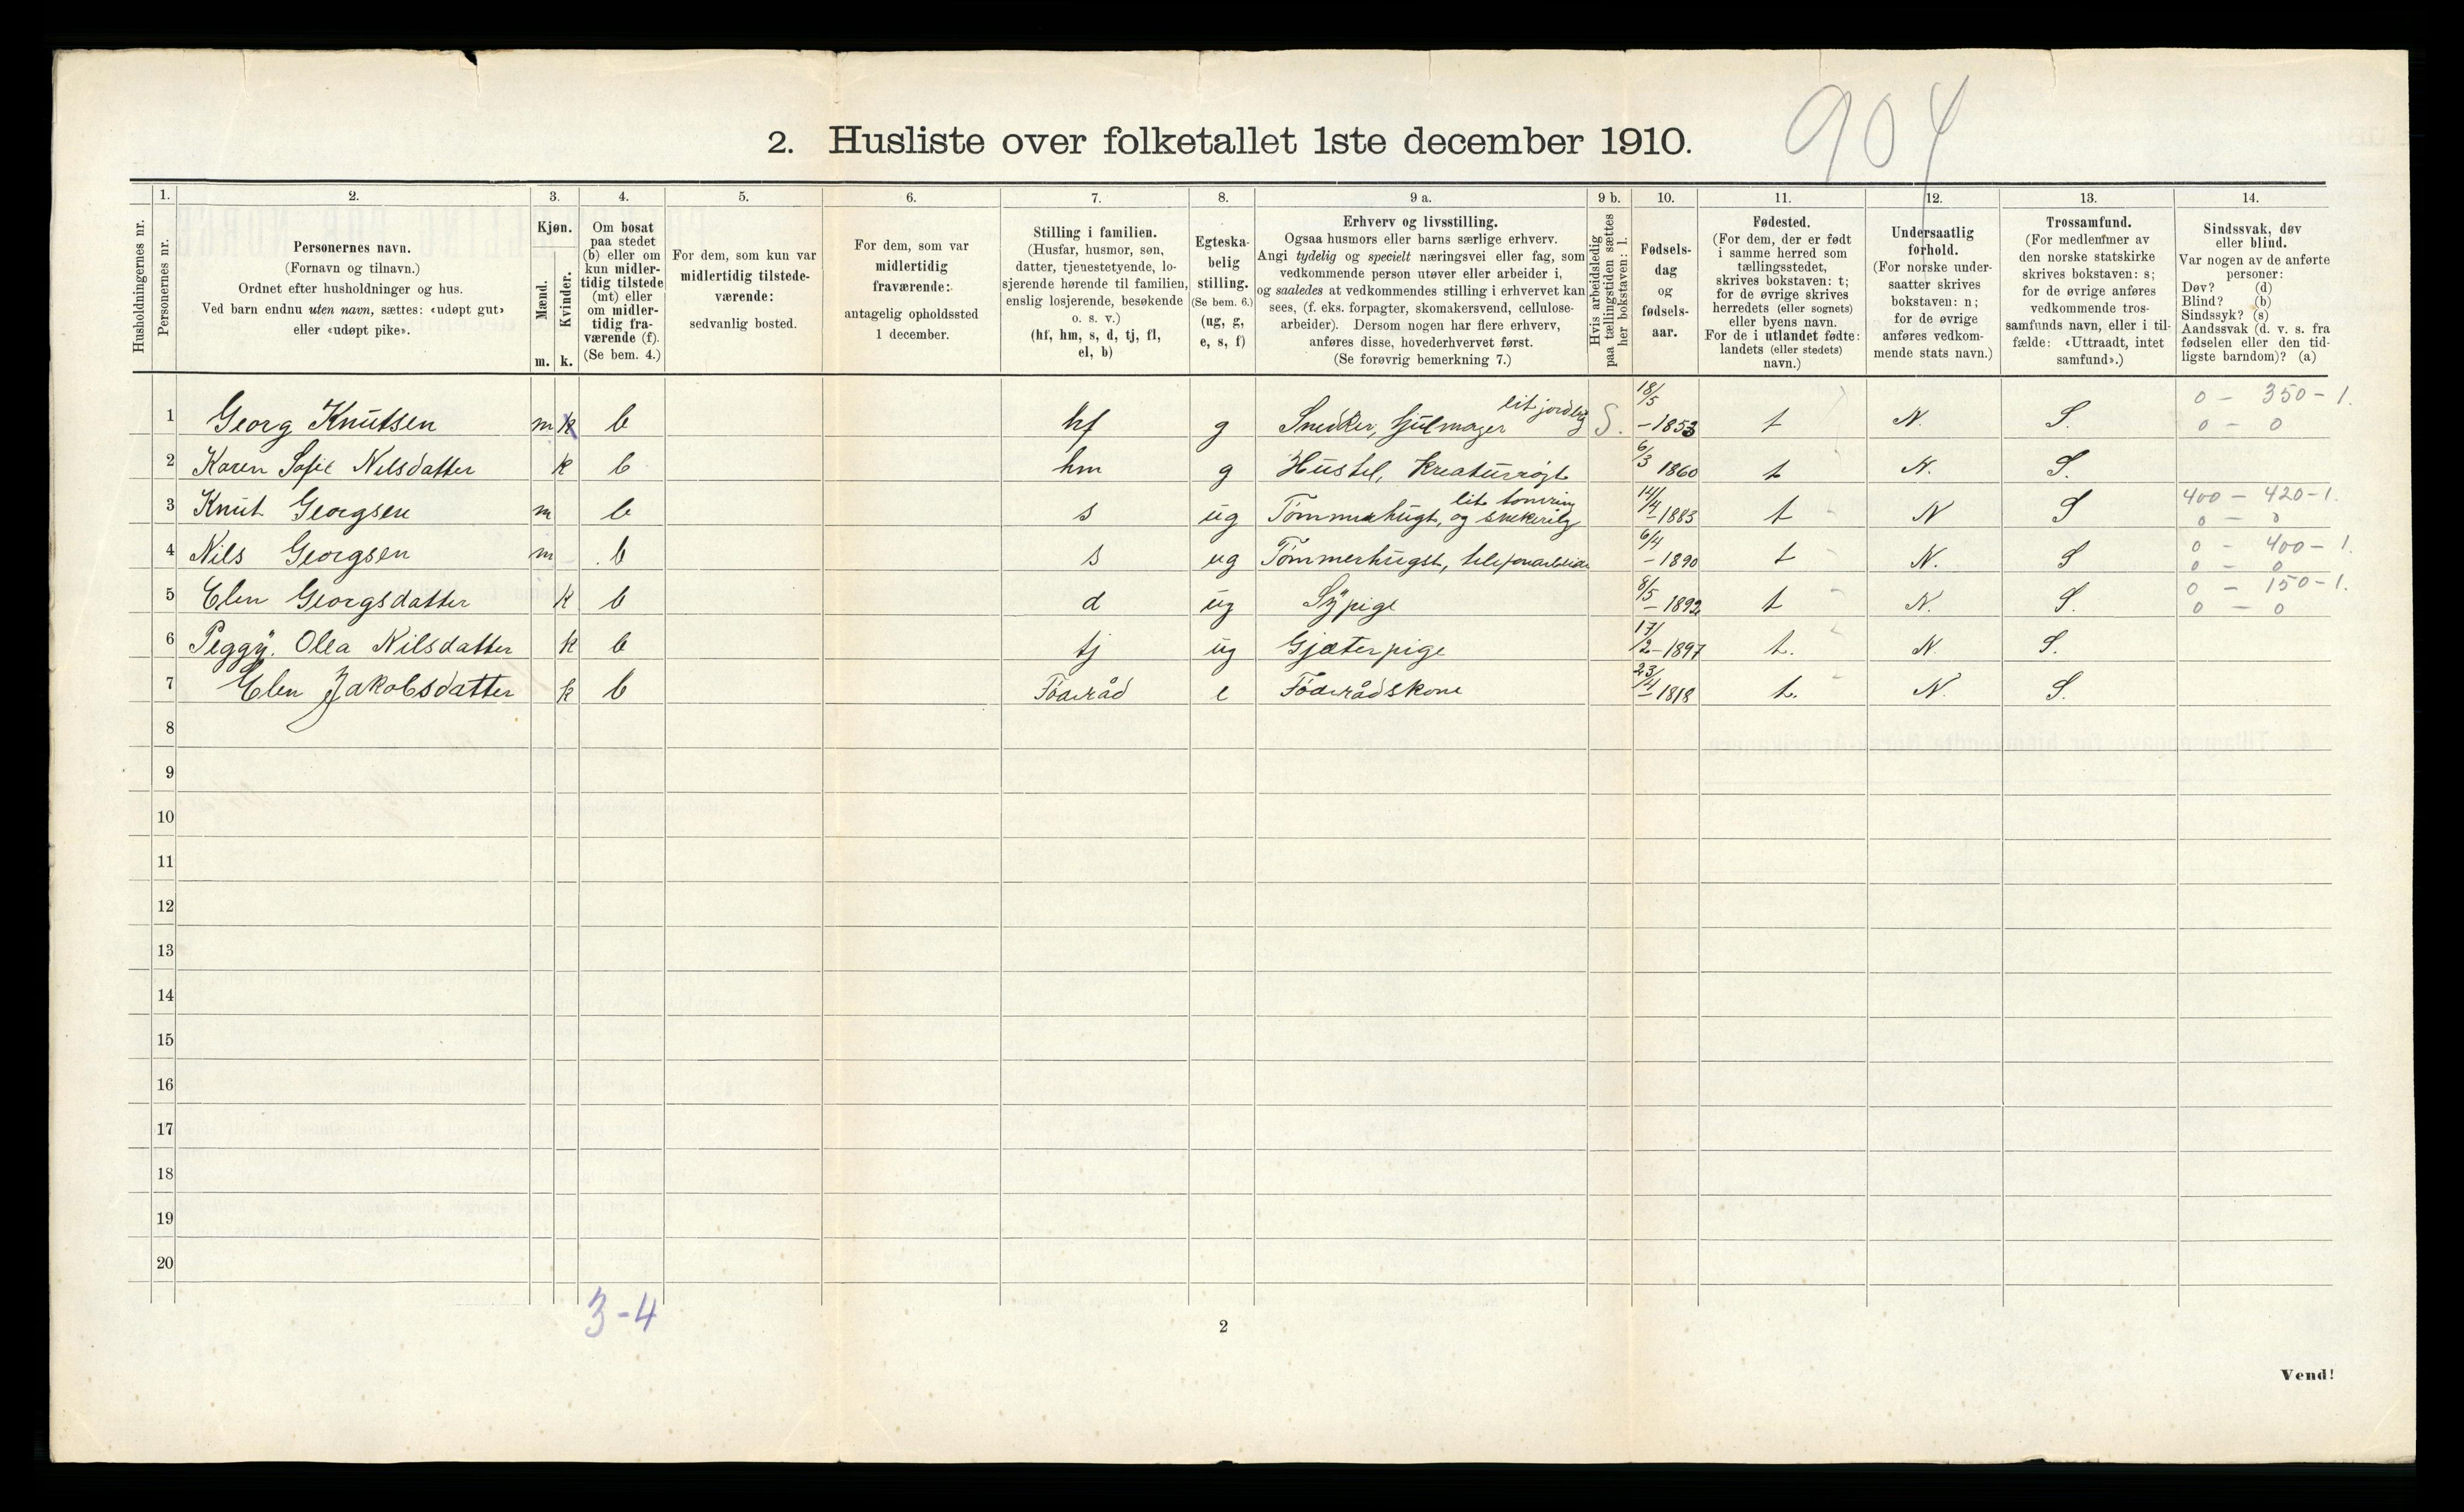 904
2. Husliste over folketallet 1ste december 1910.
Husholdningernes nr.
1.
Personernes nr.
2.
Personernes navn.
(Fornavn og tilnavn.)
Ordnet efter husholdninger og hus.
Ved barn endnu uten navn, sættes: «udøpt gut»
eller «udøpt pike».
3.
Kjøn.
Mænd.
Kvinder.
m. k.
4.
Om bosat
paa stedet
(b) eller om
kun midler-
tidig tilstede
(mt) eller
om midler-
tidig fra-
værende (f).
(Se bem. 4.)
5.
For dem, som kun var
midlertidig tilstede-
værende:
sedvanlig bosted.
6.
For dem, som var
midlertidig
fraværende:
antagelig opholdssted
1 december.
7.
Stilling i familien.
(Husfar, husmor, søn,
datter, tjenestetyende, lo-
sjerende hørende til familien,
enslig losjerende, besøkende
o. s. v.)
(hf, hm, s, d, tj, fl,
el, b)
8.
Egteska-
belig
stilling.
(Se bem. 6.)
(ug, g,
e, s, f)
9 a.
Erhverv og livsstilling.
Ogsaa husmors eller barns særlige erhverv.
Angi tydelig og specielt næringsvei eller fag, som
vedkommende person utøver eller arbeider i,
og saaledes at vedkommendes stilling i erhvervet kan
sees, (f. eks. forpagter, skomakersvend, cellulose-
arbeider). Dersom nogen har flere erhverv,
anføres disse, hovederhvervet først.
(Se forøvrig bemerkning 7.)
9 b.
Hvis arbeidsledig
paa tællingstiden sættes
her bokstaven: l.
10.
Fødsels-
dag
og
fødsels-
aar.
11.
Fødested.
(For dem, der er født
i samme herred som
tællingsstedet,
skrives bokstaven: t;
for de øvrige skrives
herredets (eller sognets)
eller byens navn.
For de i utlandet fødte:
landets (eller stedets)
navn.)
12.
Undersaatlig
forhold.
(For norske under-
saatter skrives
bokstaven: n;
for de øvrige
anføres vedkom-
mende stats navn.)
13.
Trossamfund.
(For medlemmer av
den norske statskirke
skrives bokstaven: s;
for de øvrige anføres
vedkommende tros-
samfunds navn, eller i til-
fælde: «Uttraadt, intet
samfund».)
14.
Sindssvak, døv
eller blind.
Var nogen av de anførte
personer:
Døv? (d)
Blind? (b)
Sindssyk? (s)
Aandssvak (d. v. s. fra
fødselen eller den tid-
ligste barndom)? (a)
lit jordbrug 18/5 0 - 350 - 1.
1 Georg Knutsen m k b hf g Snedker, hjulmager S. - 1853 t N. S. 0 - 0
2 Karen Sofie Nilsdatter k b hm g Hustel, kreaturrøgt 6/3 1860 t N. S.
lit tomring 14/4 400 - 420 - 1.
3 Knut Georgsen m b s ug Tømmerhugt, og snekerilg - 1883 t N S 0 - 0
6/4 0 - 400 - 1.
4 Nils Georgsen m b s ug Tømmerhugst, telefonarbeider - 1890 t N. S 0 - 0
8/5 0 - 150 - 1.
5 Elen Georgsdatter k b d ug Sÿpige - 1892 t N. S. 0 - 0
6 Peggÿ. Olea Nilsdatter k b tj ug Gjæterpige 17/2 - 1897 t. N. S.
7 Elen Jakobsdatter k b Føderåd e Føderådskone 23/4 - 1818 t. N. S.
8
9
10
11
12
13
14
15
16
17
18
19
20
3-4
2
Vend!